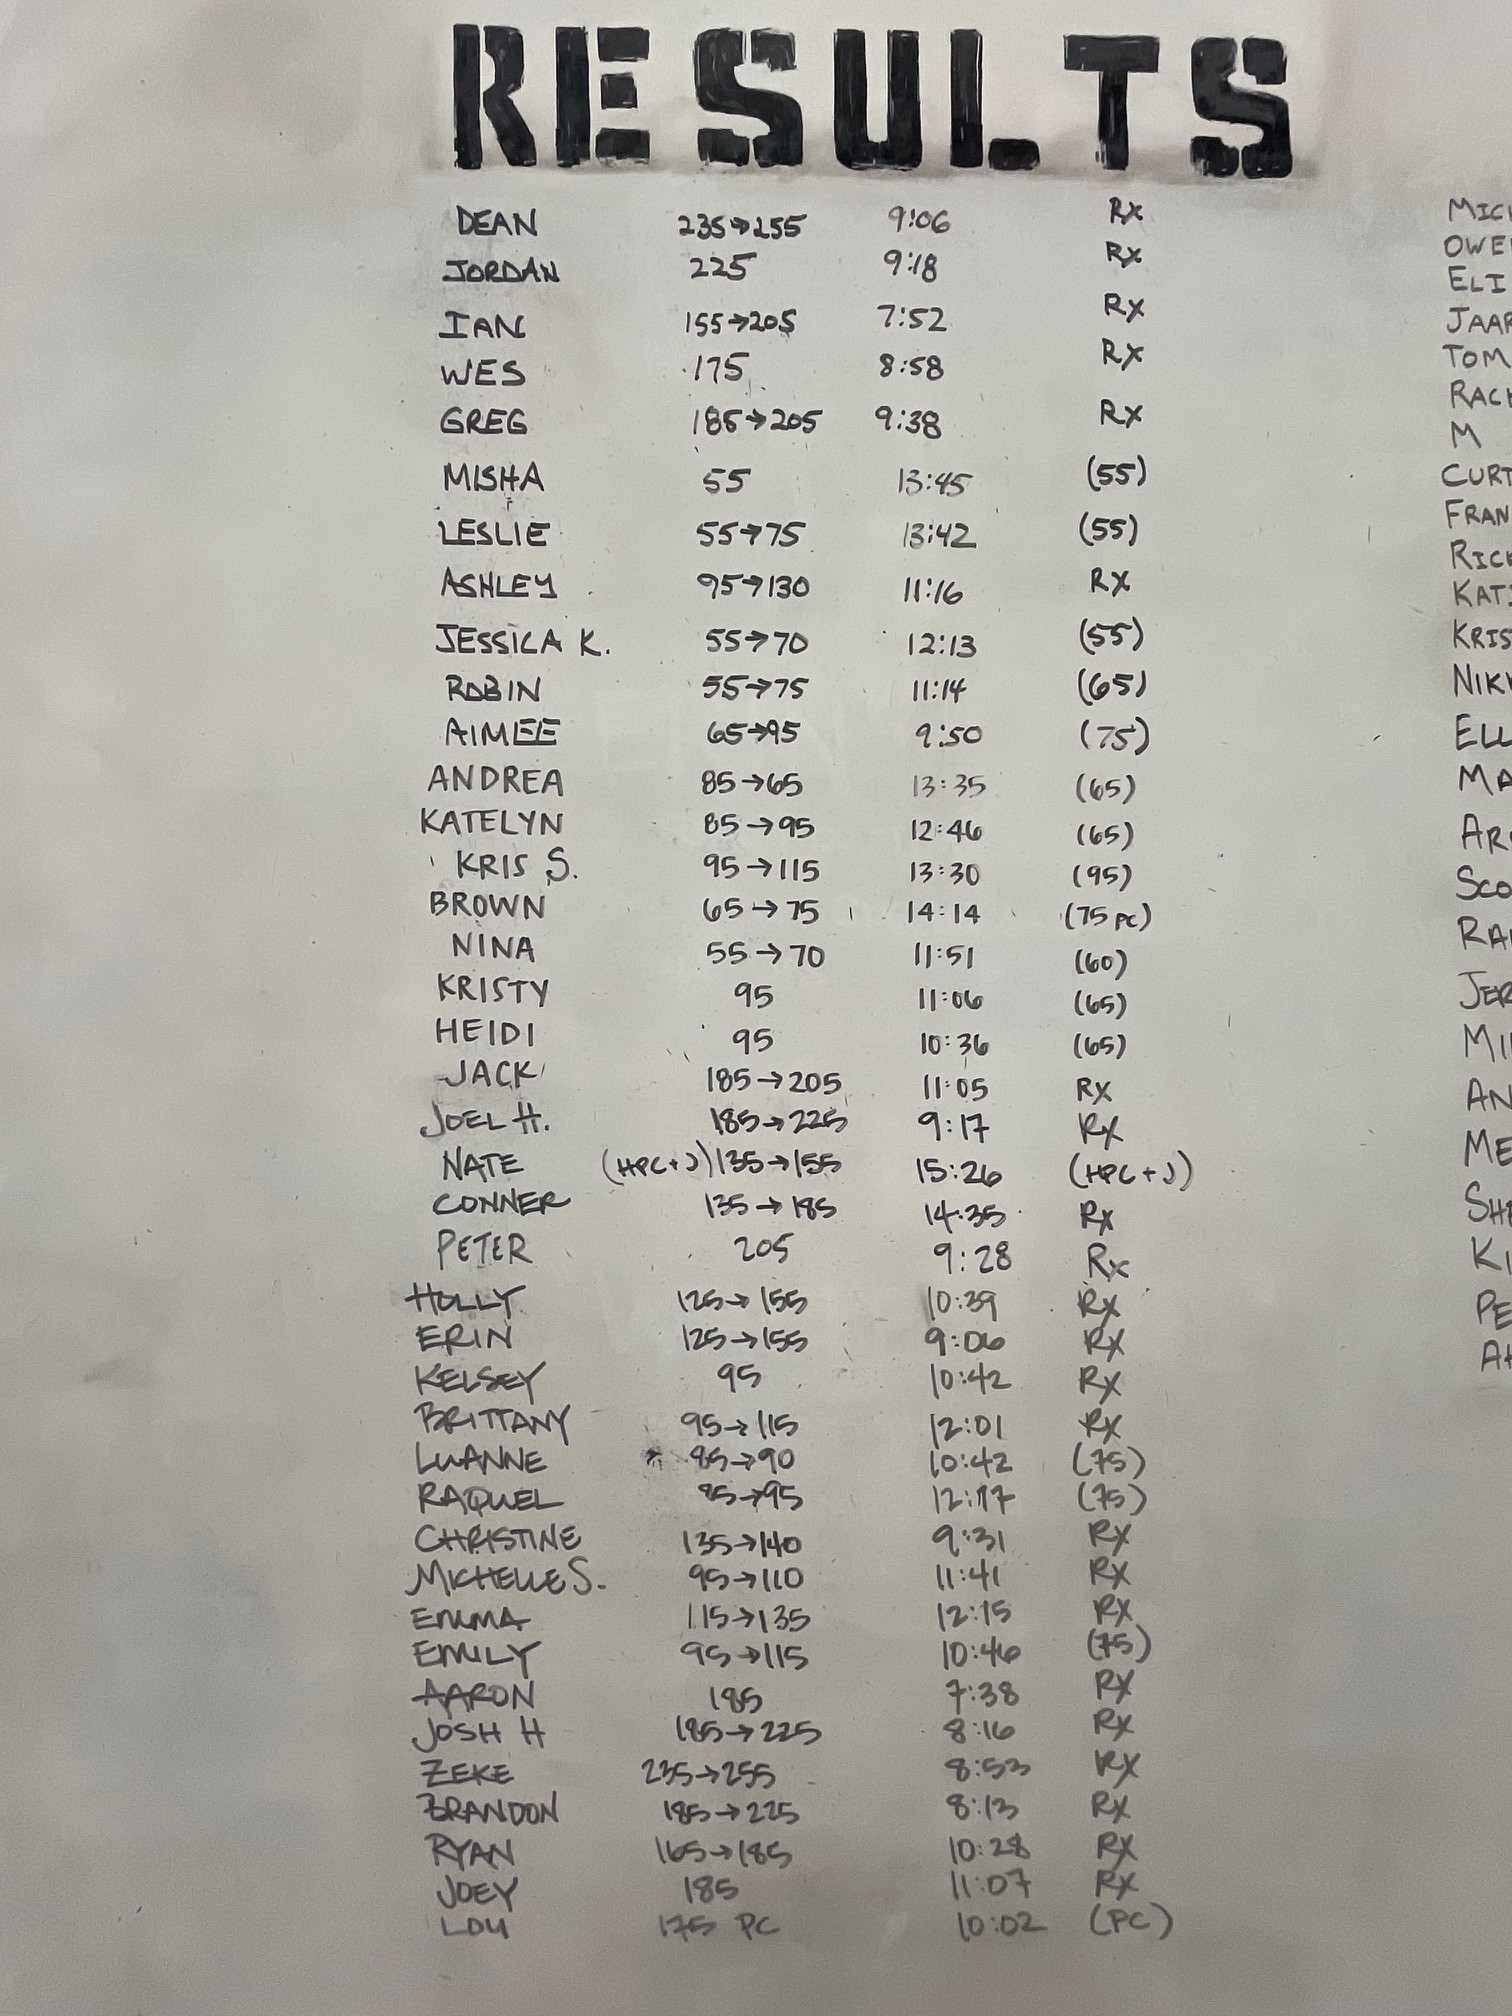 RESULTS
DEAN 235→255 9:06 Rx
JORDAN 225 9:18 Rx
IAN 155→205 7:52 Rx
WES 175 8:58 Rx
GREG 185→205 9:38 Rx
MISHA 55 13:45 (55)
LESLIE 55→75 13:42 (55)
ASHLEY 95→130 11:16 RX
JESSICA K. 55→70 12:13 (55)
ROBIN 55→75 11:14 (65)
AIMEE 65→95 9:50 (75)
ANDREA 85→65 13:35 (65)
KATELYN 85→95 12:46 (65)
KRIS S. 95→115 13:30 (95)
BROWN 65→75 14:14 (75 PC)
NINA 55→70 11:51 (60)
KRISTY 95 11:06 (65)
HEIDI 95 10:36 (65)
JACK 185→205 11:05 RX
JOEL H. 185→225 9:17 RX
NATE (HPC+J) 135→155 15:26 (HPC+J)
CONNER 135→185 14:35 RX
PETER 205 9:28 Rx
HOLLY 125→155 10:39 RX
ERIN 125→155 9:06 RX
KELSEY 95 10:42 RX
BRITTANY 95→115 12:01 RX
LUANNE * 85→90 10:42 (75)
RAQUEL 85→95 12:17 (75)
CHRISTINE 135→140 9:31 RX
MICHELLE S. 95→110 11:41 RX
EMMA 115→135 12:15 RX
EMILY 95→115 10:46 (75)
AARON 185 7:38 RX
JOSH H 185→225 8:16 RX
ZEKE 235→255 8:53 RX
BRANDON 185→225 8:13 RX
RYAN 165→185 10:28 RX
JOEY 185 11:07 RX
LOU 175 PC 10:02 (PC)
MICH
OWE
ELI
JAAR
TOM
RACH
M
CURT
FRAN
RICK
KATI
KRIS
NIKK
ELL
MA
AR
SCO
RA
JER
MI
AN
ME
SH
KI
PE